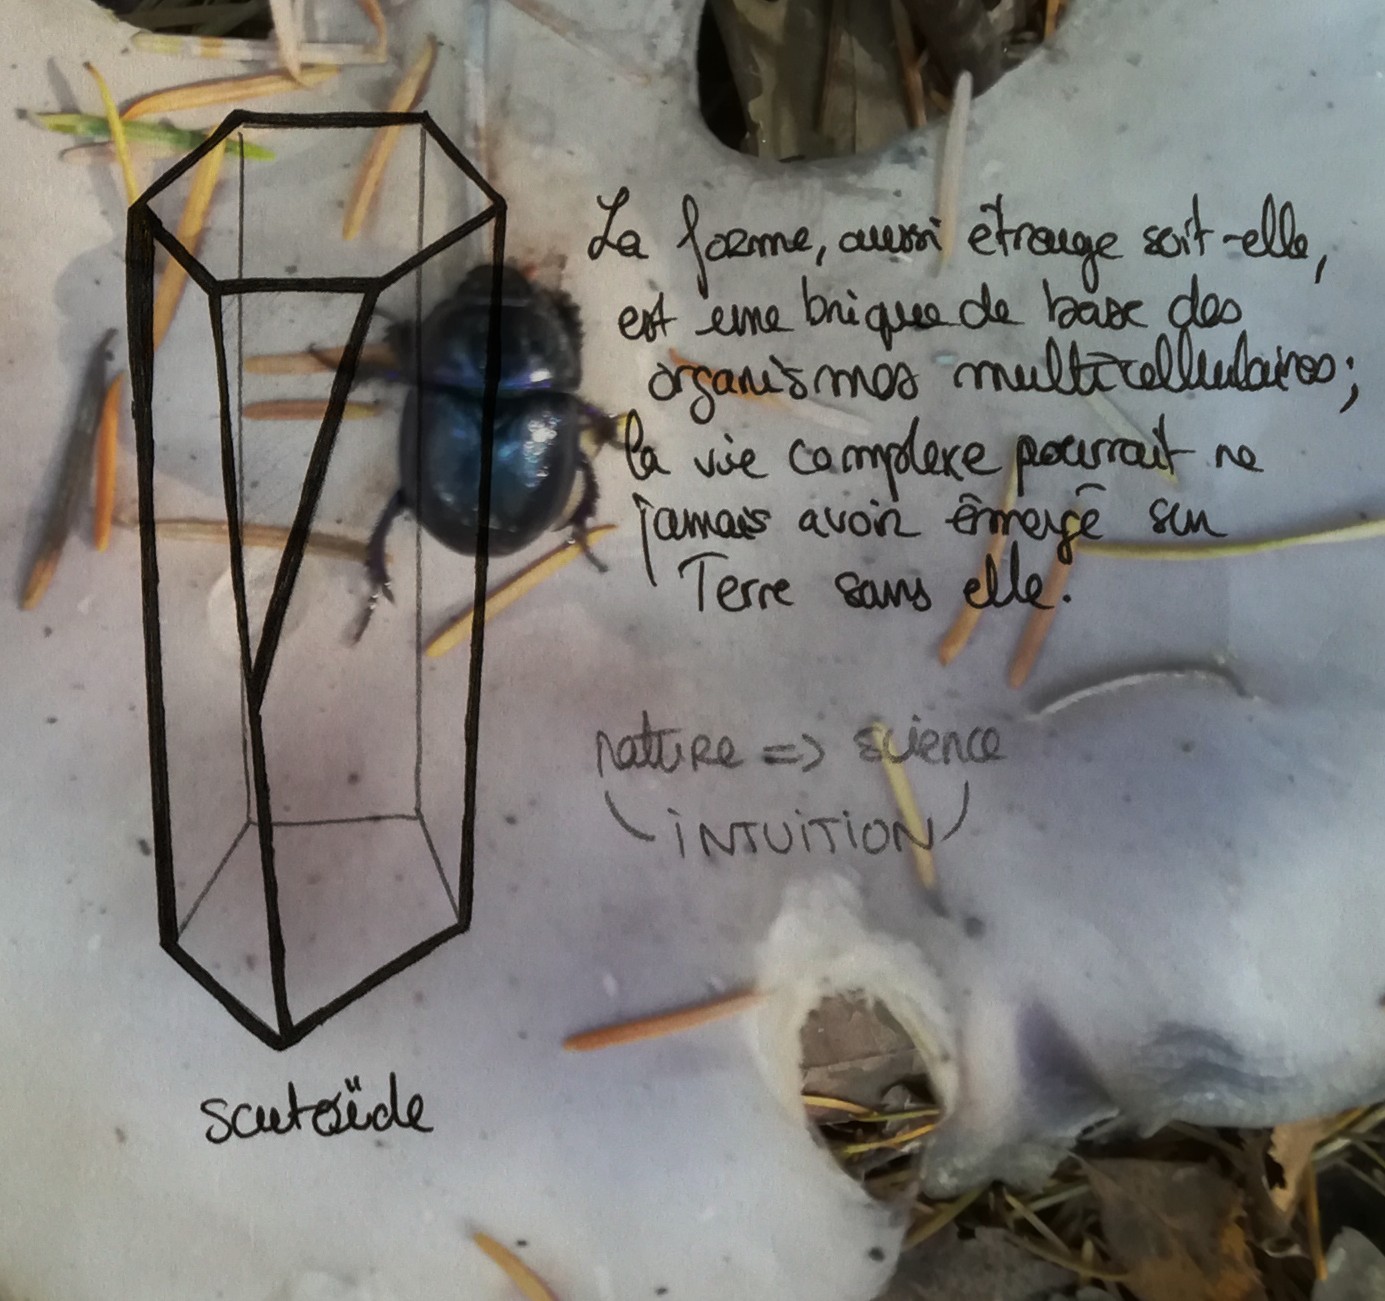 La forme, aussi étrange soit-elle,
est une brique de base des
organismes multicellulaires;
la vie complexe pourrait ne
jamais avoir émergé sur
Terre sans elle.
nature => science
INTUITION
scutoïde